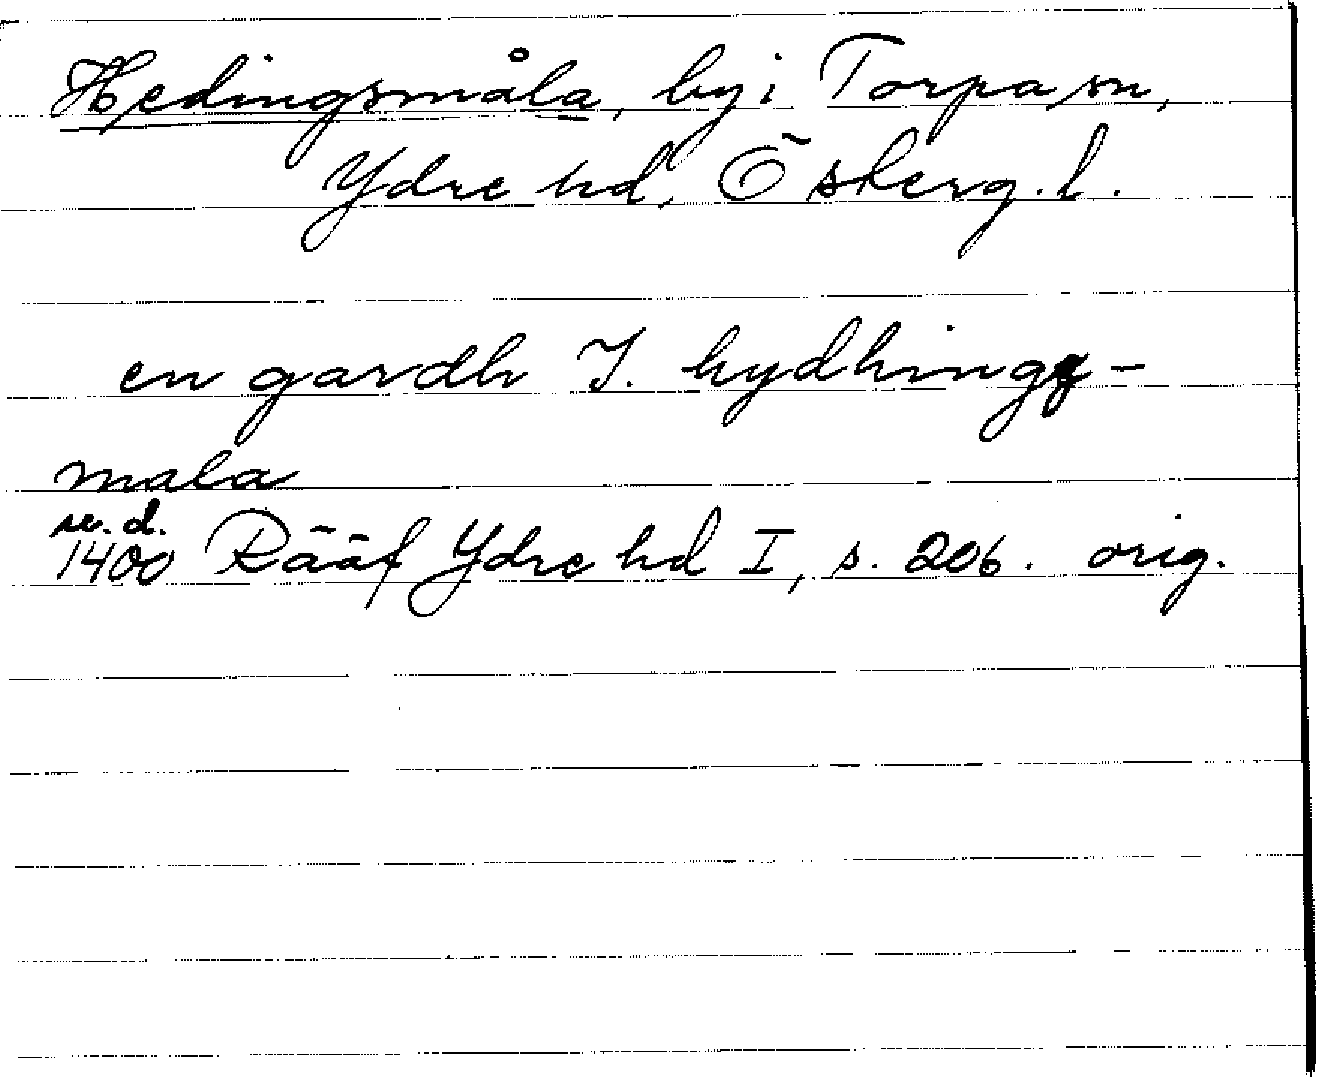 Hedingsmåla, by i Torpa sn,
Ydre hd, Österg. l.
en gardh J. hydhings-
mala
u. d.
1400 Rääf Ydre hd I, s. 206. orig.